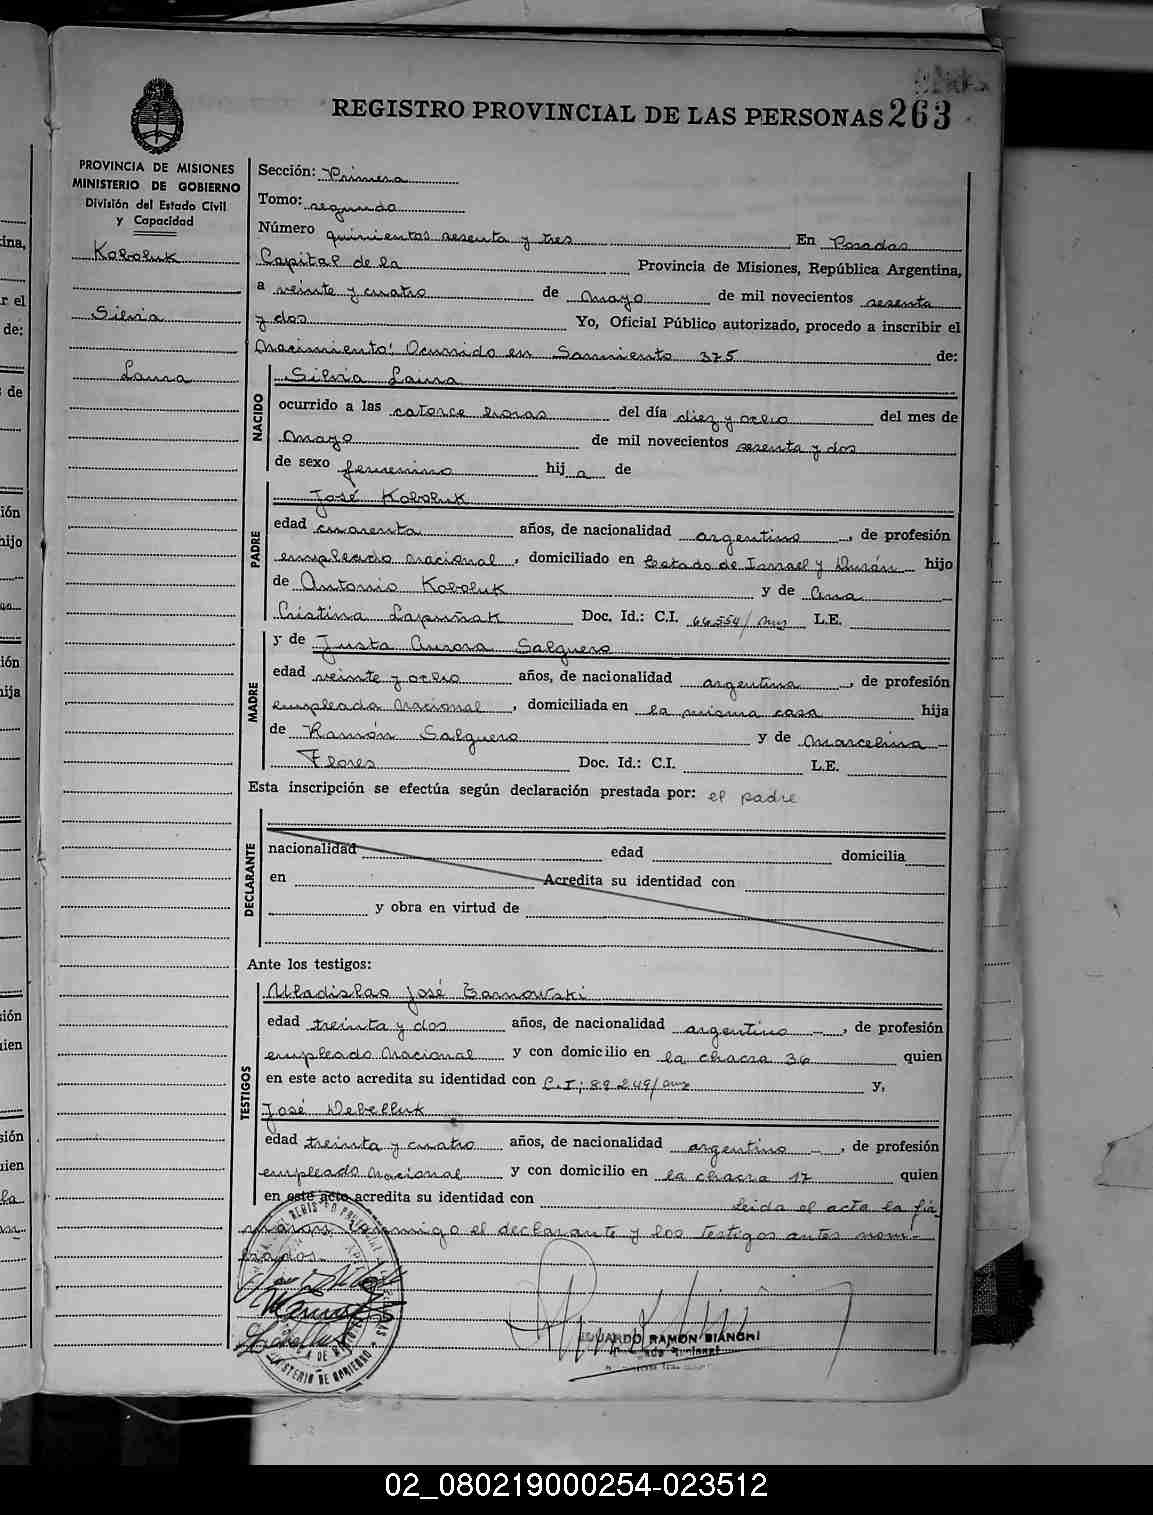 263
REGISTRO PROVINCIAL DE LAS PERSONAS
PROVINCIA DE MISIONES
MINISTERIO DE GOBIERNO
División del Estado Civil
y Capacidad
Koboluk
Silvia
Laura
Sección: Primera
Tomo: segundo
Número quinientos sesenta y tres En Posadas
Capital de la Provincia de Misiones, República Argentina,
a veinte y cuatro de Mayo de mil novecientos sesenta
y dos Yo, Oficial Público autorizado, procedo a inscribir el
Nacimiento: Ocurrido en Sarmiento 375 de:
NACIDO
Silvia Laura
ocurrido a las catorce horas del día diez y ocho del mes de
Mayo de mil novecientos sesenta y dos
de sexo femenino hij a de
PADRE
José Koboluk
edad cuarenta años, de nacionalidad argentino, de profesión
empleado Nacional, domiciliado en Estado de Israel y Durán hijo
de Antonio Koboluk y de Ana
Cristina Lapuñak Doc. Id.: C.I. 66554/ L.E.
MADRE
y de Justa Aurora Salguero
edad veinte y ocho años, de nacionalidad argentina, de profesión
empleada Nacional, domiciliada en la misma casa hija
de Ramón Salguero y de Marcelina
Flores Doc. Id.: C.I. L.E.
Esta inscripción se efectúa según declaración prestada por: el padre
DECLARANTE
nacionalidad edad domicilia
en Acredita su identidad con
y obra en virtud de
Ante los testigos:
TESTIGOS
Uladislao José Zarnowski
edad treinta y dos años, de nacionalidad argentino, de profesión
empleado Nacional y con domicilio en la chacra 36 quien
en este acto acredita su identidad con C.I; 89249/ y,
José Debelluk
edad treinta y cuatro años, de nacionalidad argentino, de profesión
empleado Nacional y con domicilio en la chacra 17 quien
en este acto acredita su identidad con leida el acta la fir
maron conmigo el declarante y los testigos antes nom-
brados.
EDUARDO RAMON BIANCHI
02_080219000254-023512